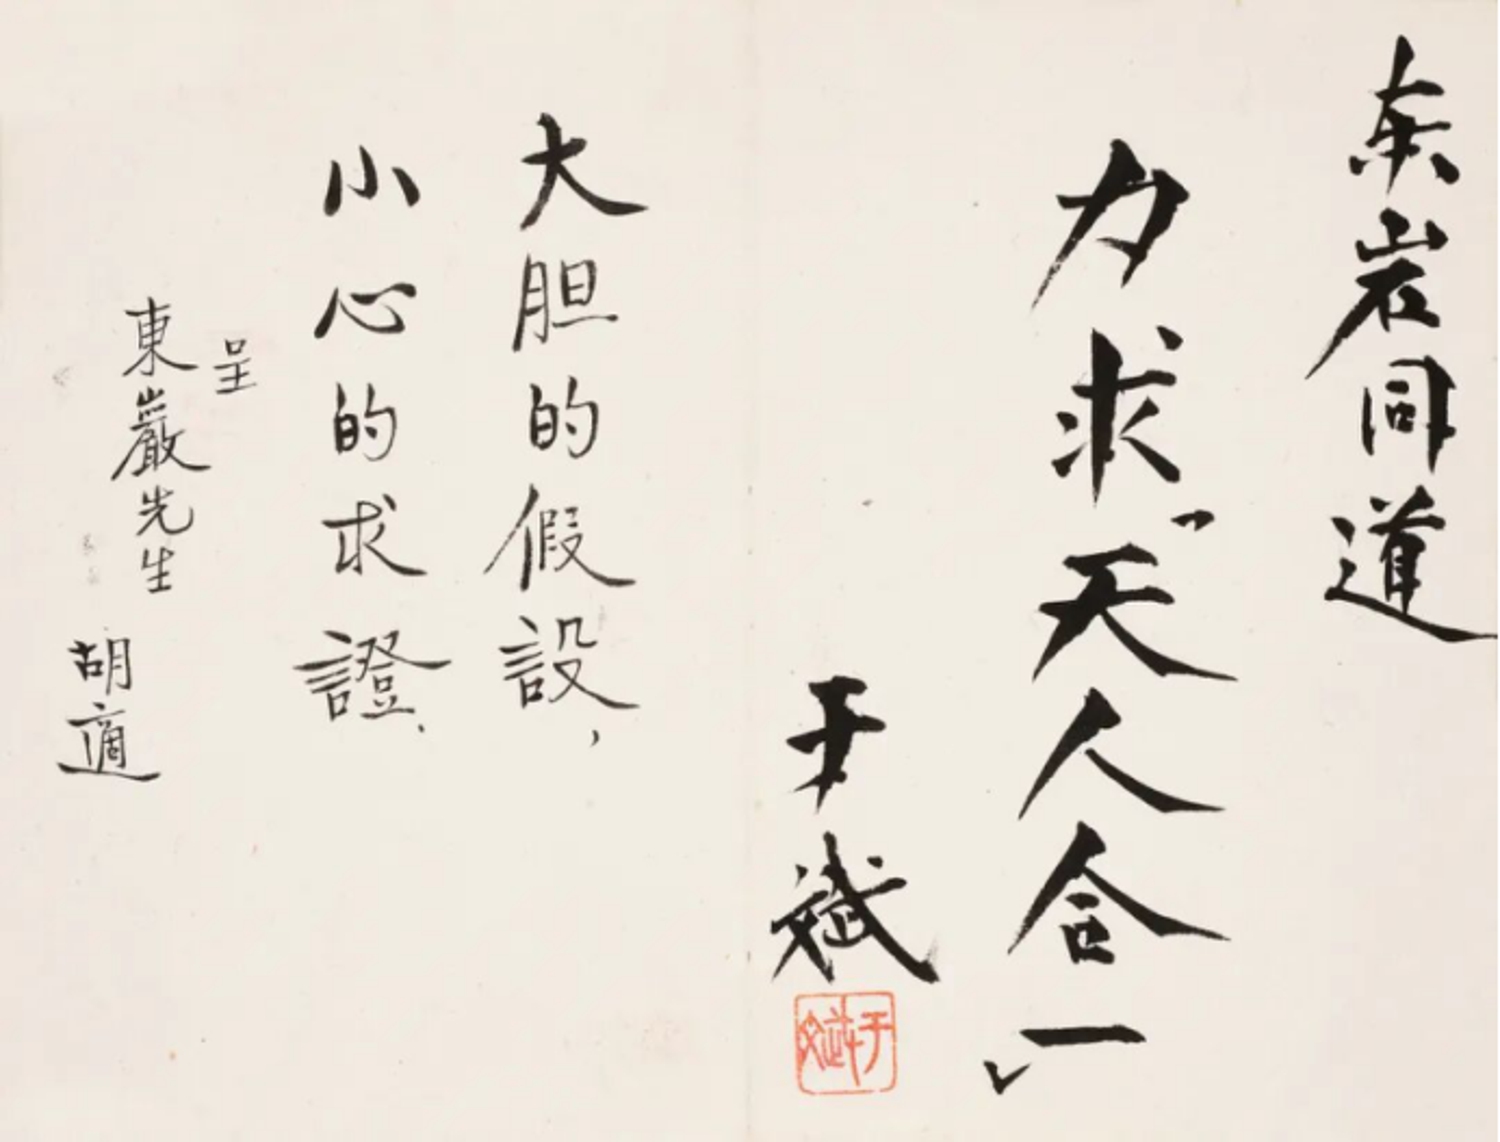 东岩同道
力求「天人合一」
于斌
于斌
大胆的假設，
小心的求證．
呈
東巖先生
胡適